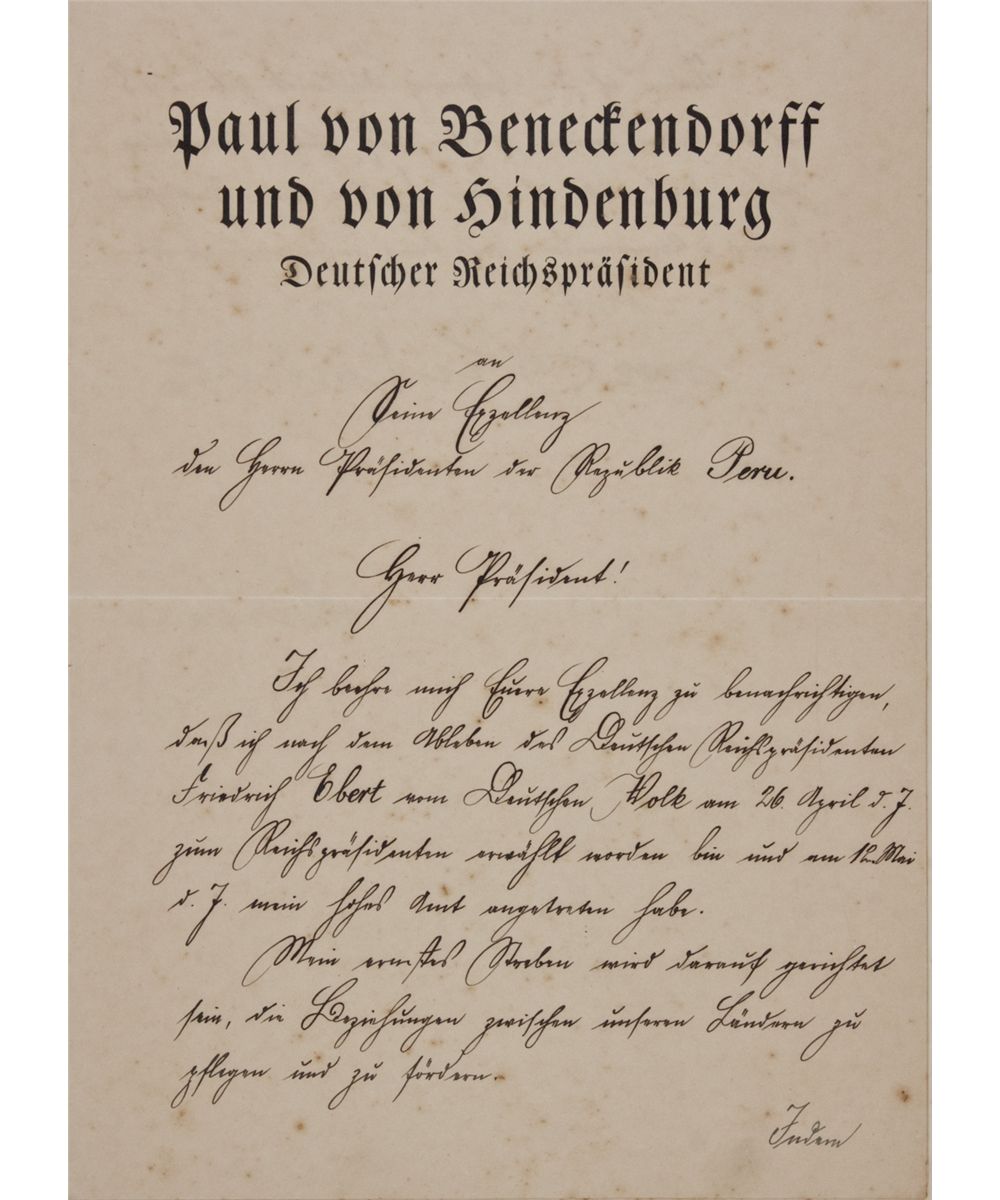 Paul von Beneckendorff
und von Hindenburg
Deutscher Reichspräsident
an
Seine Exzellenz
den Herrn Präsidenten der Republik Peru.
Herr Präsident!
Ich beehre mich Euere Exzellenz zu benachrichtigen,
daß ich nach dem Ableben des Deutschen Reichspräsidenten
Friedrich Ebert vom Deutschen Volk am 26. April d. J.
zum Reichspräsidenten erwählt worden bin und am 12. Mai
d. J. mein hohes Amt angetreten habe.
Mein ernstes Streben wird darauf gerichtet
sein, die Beziehungen zwischen unseren Ländern zu
pflegen und zu fördern.
Indem